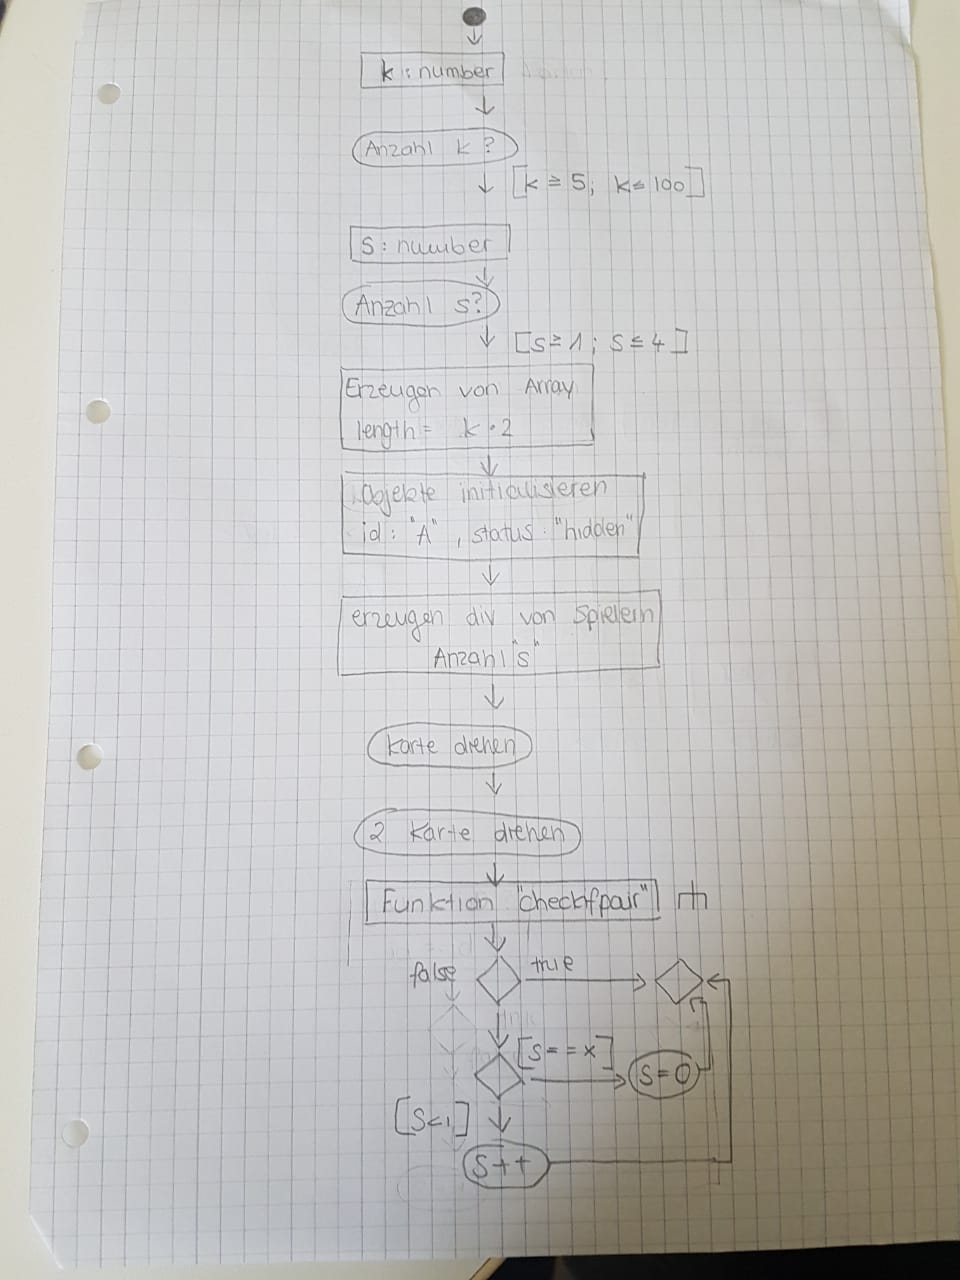 k : number
Anzahl k ?
[k ≥ 5; k ≤ 100]
S : number
Anzahl s?
[s ≥ 1 ; s ≤ 4]
Erzeugen von Array
length = k · 2
Objekte initialisieren
id : "A" , status : "hidden"
erzeugen div von Spielern
Anzahl "s"
Karte drehen
2 Karte drehen
Funktion "checkifpair"
false
true
[s = = x]
S = 0
[S < ]
S + +